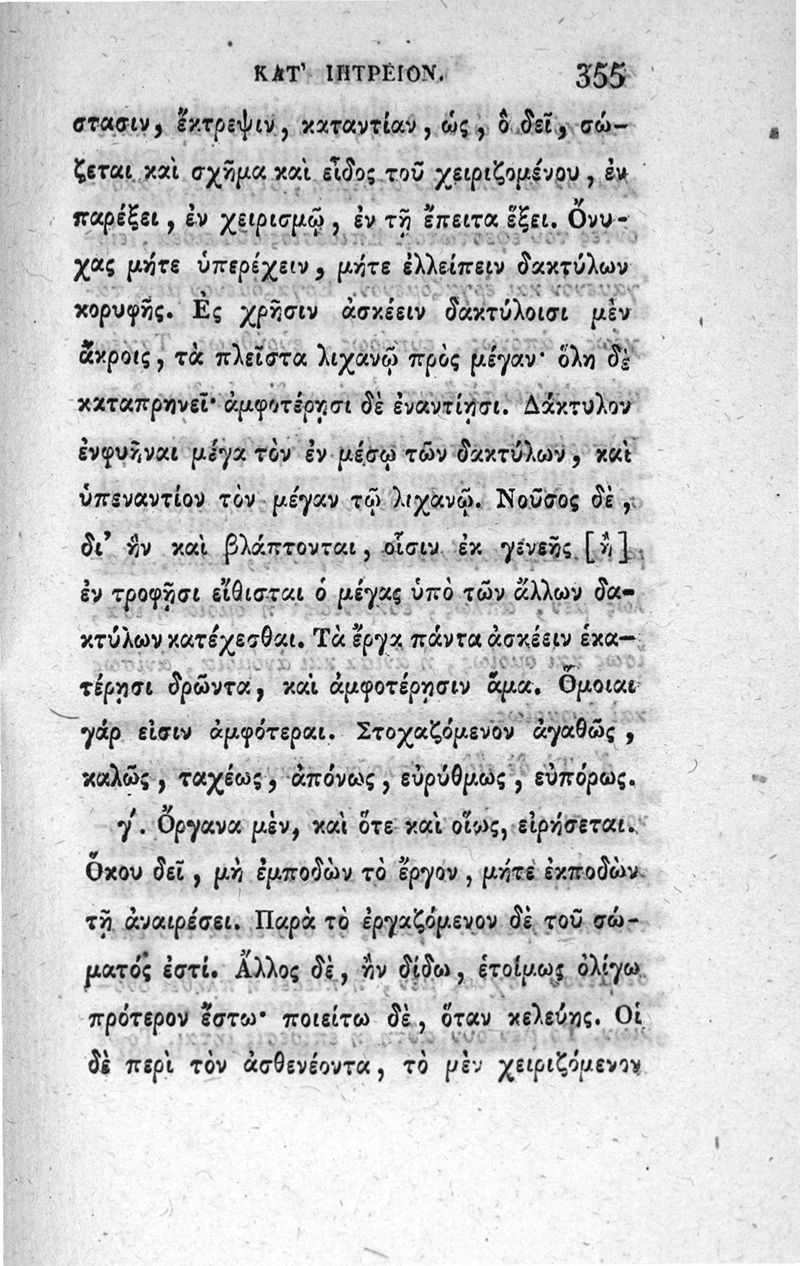 ΚΑΤ' ΙΗΤΡΕΙΟΝ. 355
στασιν, ἔκτρεψιν, καταντίαν, ὡς, ὃ δεῖ, σώ-
ζεται καὶ σχῆμα καὶ εἶδος τοῦ χειριζομένου, ἐν
παρέξει, ἐν χειρισμῷ, ἐν τῇ ἔπειτα ἕξει. Ὄνυ-
χας μήτε ὑπερέχειν, μήτε ἐλλείπειν δακτύλων
κορυφῆς. Ἐς χρῆσιν ἀσκέειν δακτύλοισι μὲν
ἄκροις, τὰ πλεῖστα λιχανῷ πρὸς μέγαν· ὅλη δὲ
καταπρηνεῖ· ἀμφοτέρῃσι δὲ ἐναντίῃσι. Δάκτυλον
ἐνφυῆναι μέγα τὸν ἐν μέσῳ τῶν δακτύλων, καὶ
ὑπεναντίον τὸν μέγαν τῷ λιχανῷ. Νοῦσος δὲ,
δι' ἣν καὶ βλάπτονται, οἷσιν ἐκ γενεῆς [ἢ]
ἐν τροφῇσι εἴθισται ὁ μέγας ὑπὸ τῶν ἄλλων δα-
κτύλων κατέχεσθαι. Τὰ ἔργα πάντα ἀσκέειν ἑκα-
τέρῃσι δρῶντα, καὶ ἀμφοτέρῃσιν ἅμα. Ὅμοιαι
γάρ εἰσιν ἀμφότεραι. Στοχαζόμενον ἀγαθῶς,
καλῶς, ταχέως, ἀπόνως, εὐρύθμως, εὐπόρως.
γ'. Ὄργανα μὲν, καὶ ὅτε καὶ οἵως, εἰρήσεται.
Ὅκου δεῖ, μὴ ἐμποδὼν τὸ ἔργον, μήτε ἐκποδὼν
τῇ ἀναιρέσει. Παρὰ τὸ ἐργαζόμενον δὲ τοῦ σώ-
ματός ἐστί. Ἄλλος δὲ, ἢν δίδω, ἑτοίμως ὀλίγω
πρότερον ἔστω· ποιείτω δὲ, ὅταν κελεύῃς. Οἱ
δὲ περὶ τὸν ἀσθενέοντα, τὸ μὲν χειριζόμενον